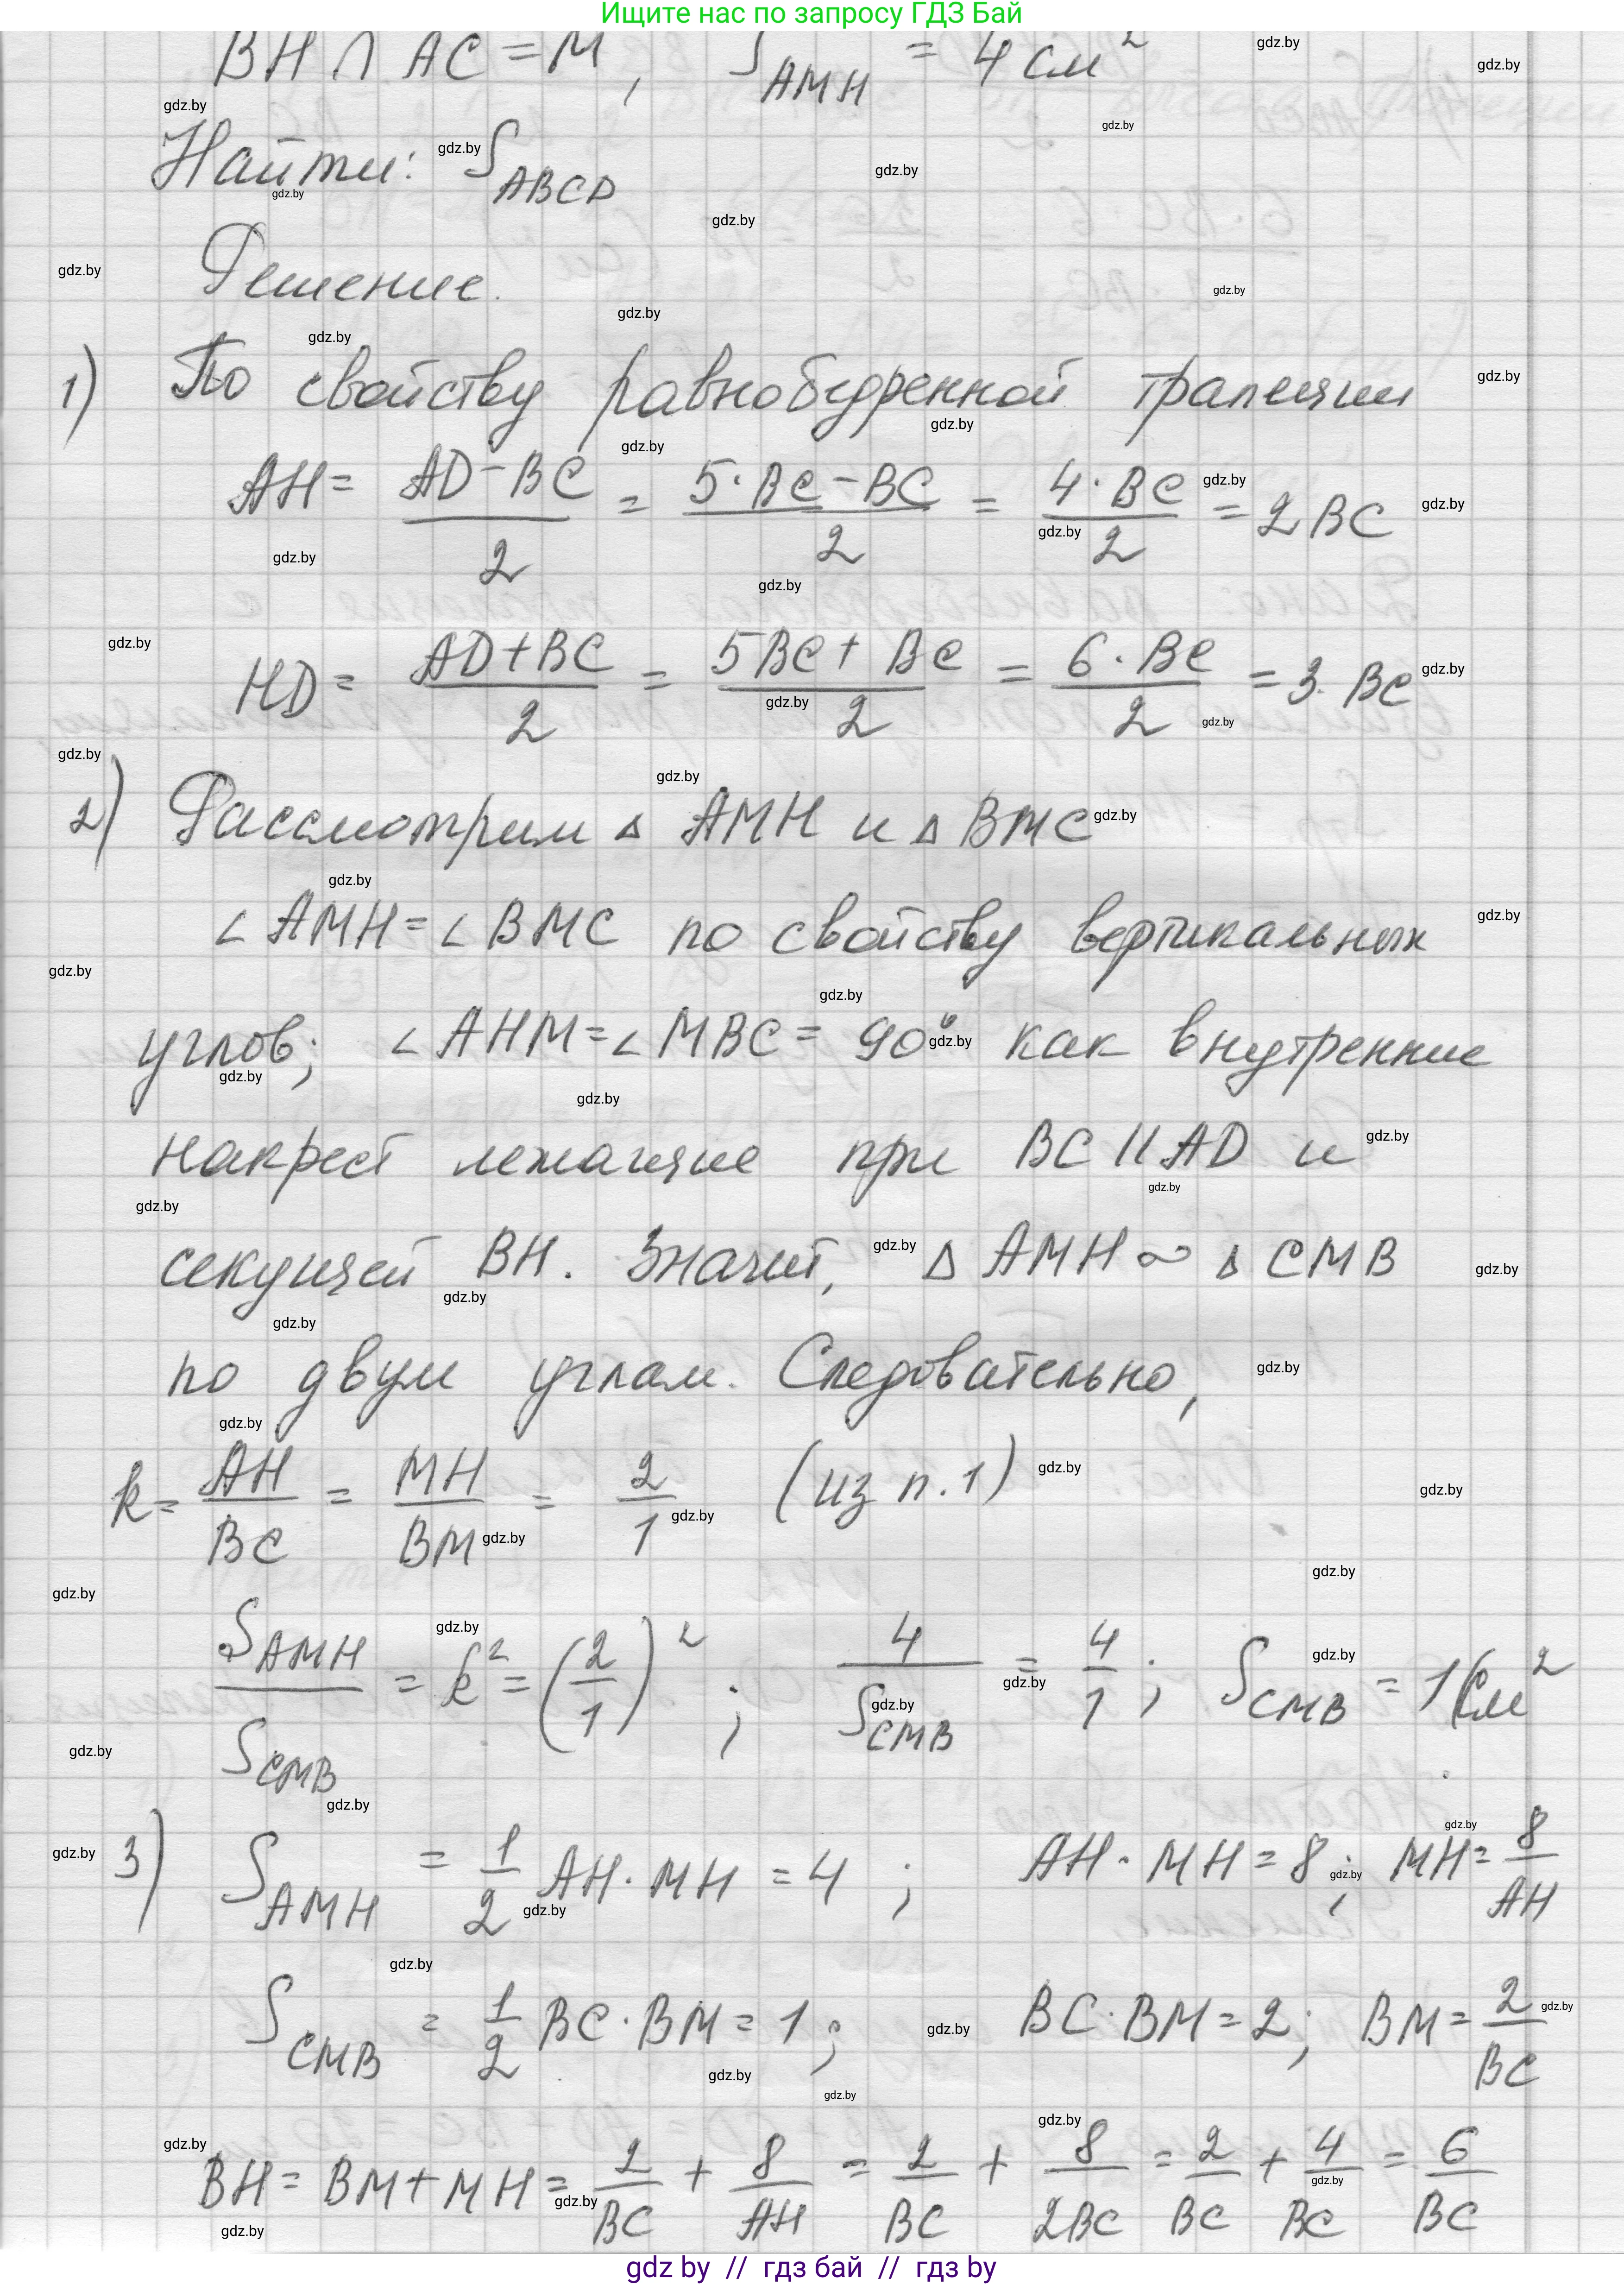 Ищите нас по запросу ГДЗ Бай
BH ∩ AC = M, S_AMH = 4 см²
Найти: S_ABCD
Решение.
1) По свойству равнобедренной трапеции
AH = (AD - BC)/2 = (5·BC - BC)/2 = (4·BC)/2 = 2BC
HD = (AD + BC)/2 = (5BC + BC)/2 = (6·BC)/2 = 3·BC
2) Рассмотрим △ AMH и △ BMC
∠ AMH = ∠ BMC по свойству вертикальных
углов; ∠ AHM = ∠ MBC = 90° как внутренние
накрест лежащие при BC || AD и
секущей BH. Значит, △ AMH ∾ △ CMB
по двум углам. Следовательно,
k = AH/BC = MH/BM = 2/1 (из п. 1)
S_AMH/S_CMB = k² = (2/1)²; 4/S_CMB = 4/1; S_CMB = 1 см²
3) S_AMH = 1/2 AH·MH = 4; AH·MH = 8; MH = 8/AH
S_CMB = 1/2 BC·BM = 1; BC·BM = 2; BM = 2/BC
BH = BM + MH = 2/BC + 8/AH = 2/BC + 8/2BC = 2/BC + 4/BC = 6/BC
gdz by // гдз бай // гдз by